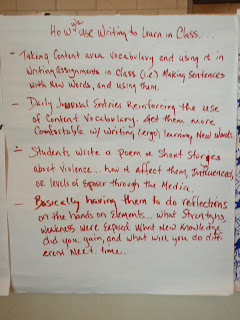 How we use Writing to Learn in Class....
- Taking Content area vocabulary and using it in
Writing assignments in Class (i.e.) Making Sentences
with New words, and using them.
- Daily Journal Entries Reinforcing the use
of Content Vocabulary. Get them more
Comfortable w/ Writing (ergo) learning New words.
- Students write a poem or Short Storyes
about Violence... how it affect them, Influenced,
or levels of Exposer through the Media.
- Basically having them to do reflections
on the hands on Elements... what Strengths,
weakness were Exposed What New Knowledge
did you gain, and what will you do diff-
erent Next time.